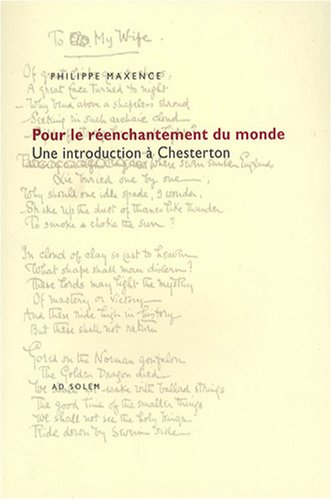 To My Wife.
Of great
PHILIPPE MAXENCE
A great face turned to night
Why bend above a shapeless shroud
Seeking in such archaic cloud
Pour le réenchantement du monde
Une introduction à Chesterton
Where seven sunken Englands
Lie buried one by one
Why should one idle spade, I wonder,
Shake up the dust of thanes like thunder
To smoke & choke the sun?
In cloud of clay so cast to heaven
What shape shall man discern?
These lords may light the mystery
Of mastery or victory
And these ride high in history
But these shall not return
Gored on the Norman gonfalon
The Golden Dragon died
AD SOLEM
We wake with ballad strings
The good time of the smaller things
We shall not see the holy kings
Ride down by Severn side